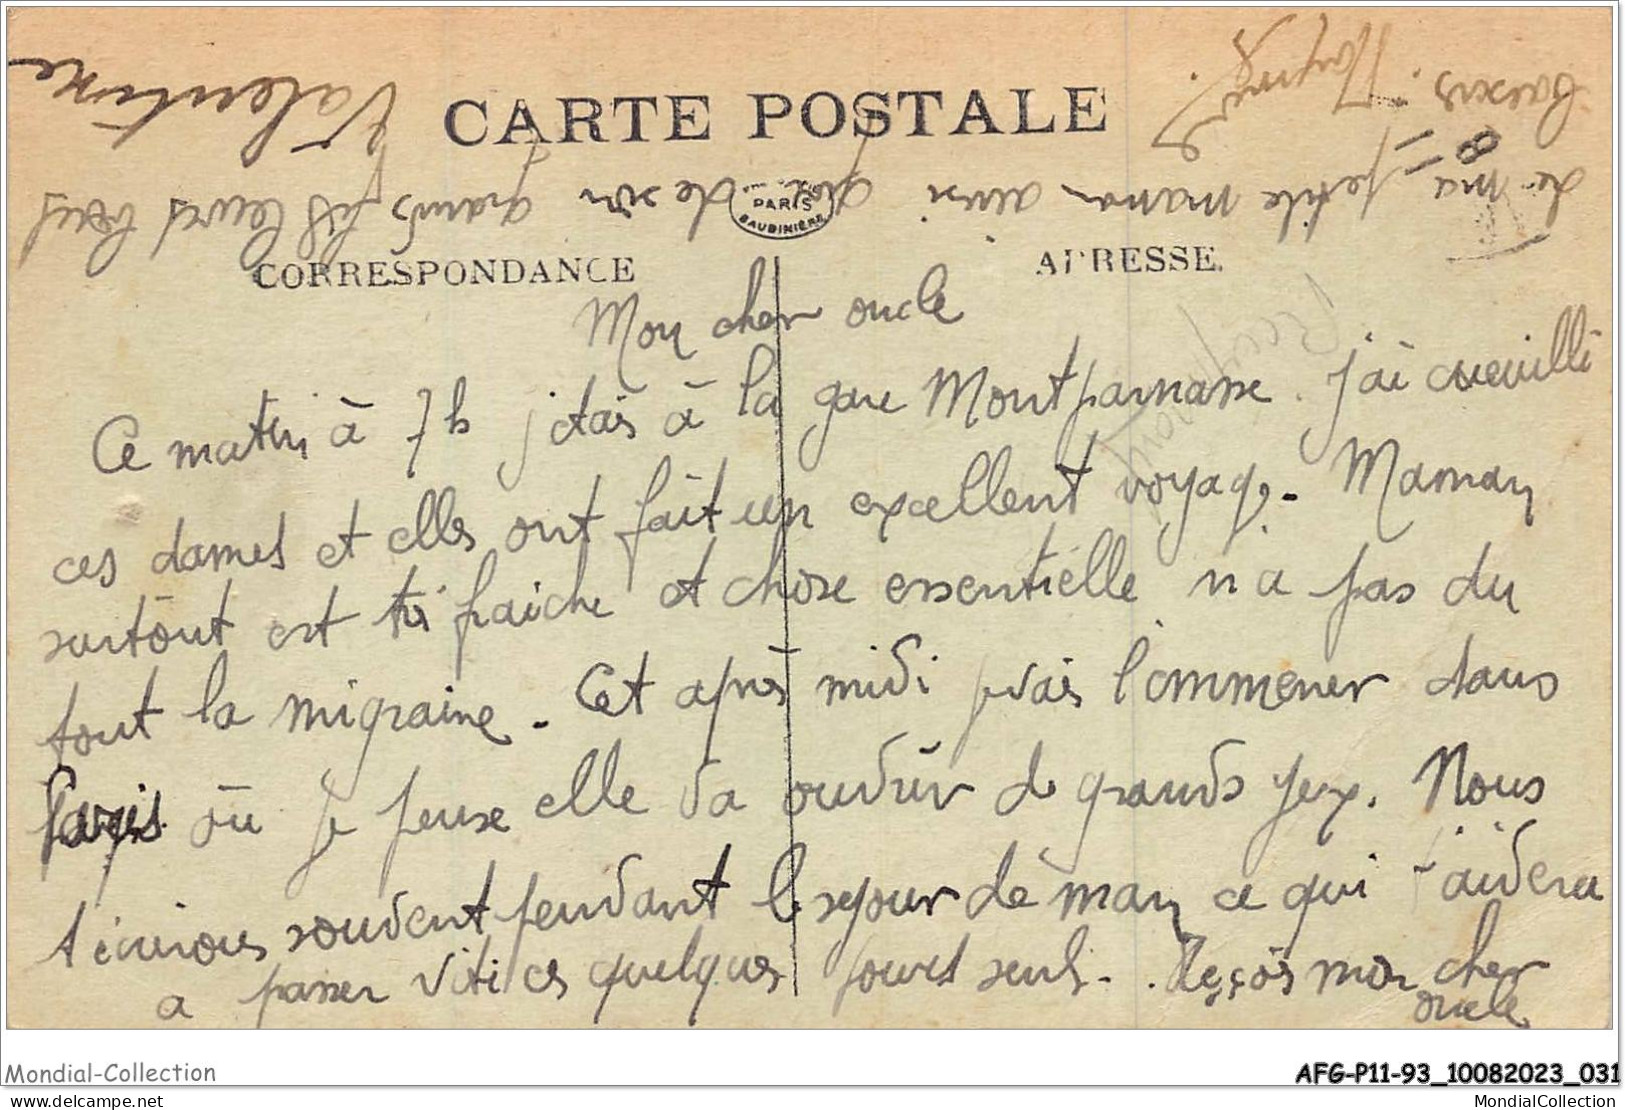 CARTE POSTALE
PARIS
BAUDINIÈRE
CORRESPONDANCE
ADRESSE.
Mon cher oncle
Ce matin à 7h j'étais à la gare Montparnasse. J'ai cueuilli
ces dames et elles ont fait un excellent voyage. Maman
surtout est très fraiche et chose essentielle n'a pas du
tout la migraine. Cet après midi je vais l'emmener dans
Paris où je pense elle va ouvrir de grands yeux. Nous
t'écrirons souvent pendant le sejour de man ce qui t'aidera
a passer vite ces quelques jours seuls. Reçois mon cher
oncle
de ma petite maman ainsi que de son grand fils leurs bons
baisers.
Valentine
Mondial-Collection
AFG-P11-93_10082023_031
delcampe.net
MondialCollection